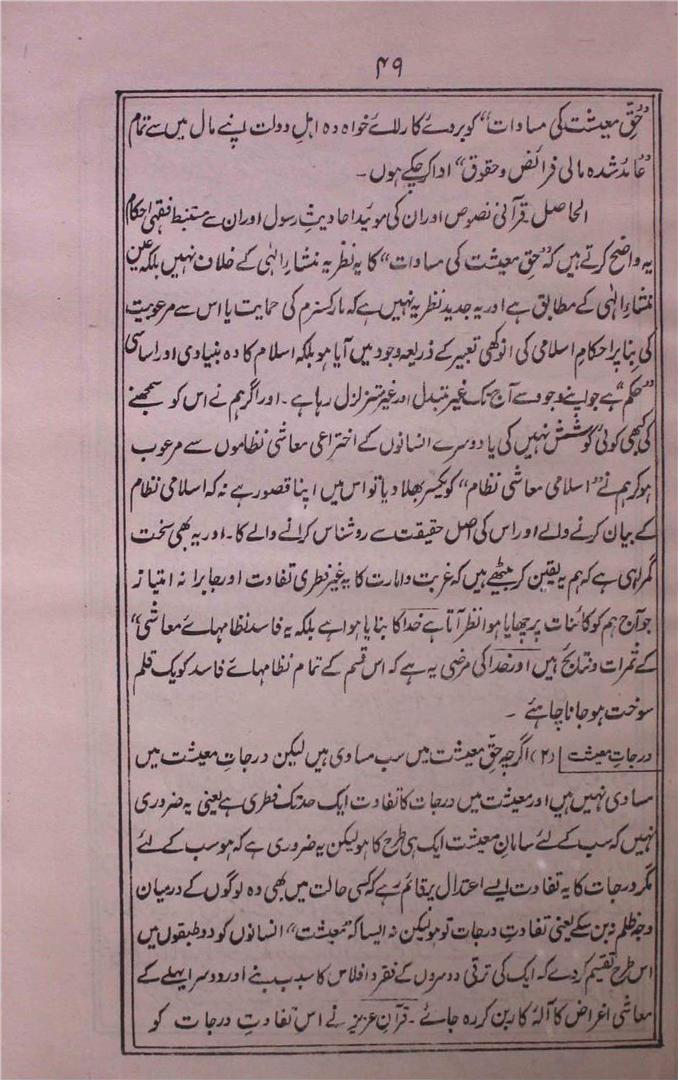 ۴۹
”حقِ معیشت کی مساوات“ کو بروئے کار لائے خواہ وہ اہلِ دولت اپنے مال میں سے تمام
”عائد شدہ مالی فرائض و حقوق“ ادا کر چکے ہوں۔
الحاصل۔ قرآنی نصوص اور ان کی موید احادیثِ رسول اور ان سے مستنبط فقہی احکام
یہ واضح کرتے ہیں کہ ”حقِ معیشت کی مساوات“ کا یہ نظریہ منشاءِ الٰہی کے خلاف نہیں بلکہ عین
منشاءِ الٰہی کے مطابق ہے اور یہ جدید نظریہ نہیں ہے کہ مارکسزم کی حمایت یا اس سے مرعوبیت
کی بنا پر احکامِ اسلامی کی انوکھی تعبیر کے ذریعہ وجود میں آیا ہو بلکہ اسلام کا وہ بنیادی اور اساسی
”حکم“ ہے جو اپنے وجود سے آج تک غیر متبدل اور غیر متزلزل رہا ہے۔ اور اگر ہم نے اس کو سمجھنے
کی کبھی کوئی کوشش نہیں کی یا دوسرے انسانوں کے اختراعی معاشی نظاموں سے مرعوب
ہو کر ہم نے ”اسلامی معاشی نظام“ کو یکسر بھلا دیا تو اس میں اپنا قصور ہے نہ کہ اسلامی نظام
کے بیان کرنے والے اور اس کی اصل حقیقت سے روشناس کرانے والے کا۔ اور یہ بھی سخت
گمراہی ہے کہ ہم یہ یقین کر بیٹھے ہیں کہ غربت و امارت کا یہ غیر فطری تفاوت اور جابرانہ امتیاز
جو آج ہم کو کائنات پر چھایا ہوا نظر آتا ہے خدا کا بنایا ہوا ہے بلکہ یہ فاسد نظامہائے معاشی“
کے ثمرات و نتائج ہیں اور خدا کی مرضی یہ ہے کہ اس قسم کے تمام نظامہائے فاسد کو یک قلم
سوخت ہو جانا چاہئے۔
درجاتِ معیشت (۲) اگرچہ حقِ معیشت میں سب مساوی ہیں لیکن درجاتِ معیشت میں
مساوی نہیں ہیں اور معیشت میں درجات کا تفاوت ایک حد تک فطری ہے یعنی یہ ضروری
نہیں کہ سب کے لئے سامانِ معیشت ایک ہی طرح کا ہو لیکن یہ ضروری ہے کہ ہو سب کے لئے
مگر درجات کا یہ تفاوت ایسے اعتدال پر قائم رہے کہ کسی حالت میں بھی وہ لوگوں کے درمیان
وجہ ظلم نہ بن سکے یعنی تفاوتِ درجات تو ہو لیکن نہ ایسا کہ ”معیشت“ انسانوں کو دو طبقوں میں
اس طرح تقسیم کر دے کہ ایک کی ترقی دوسروں کے فقر و افلاس کا سبب بنے اور دوسرا پہلے کے
معاشی اغراض کا آلۂ کار بن کر رہ جائے۔ قرآنِ عزیز نے اس تفاوتِ درجات کو